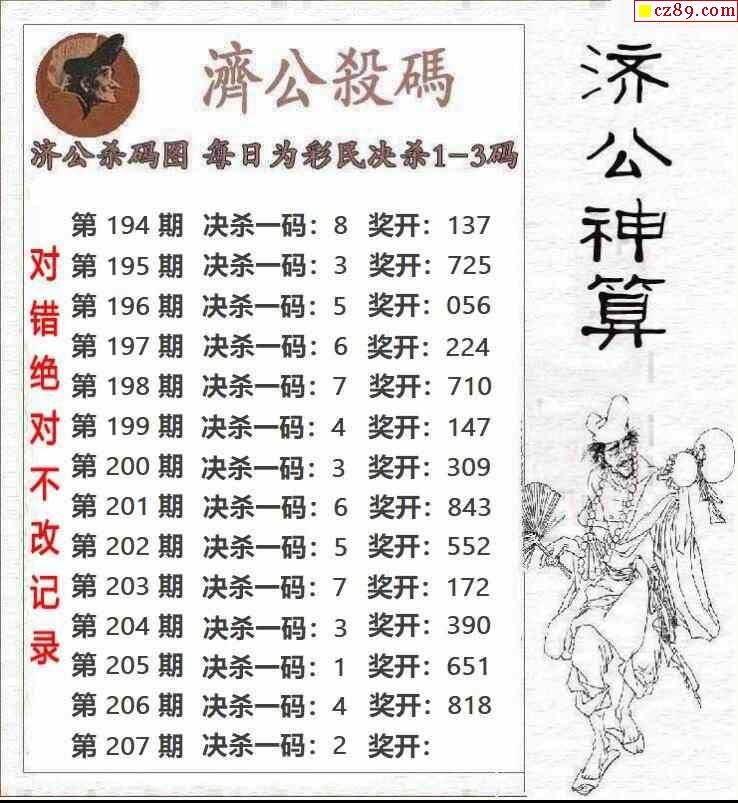 cz89.com
濟公殺碼
济公杀码图 每日为彩民决杀1-3码
第 194 期 决杀一码：8 奖开：137
第 195 期 决杀一码：3 奖开：725
第 196 期 决杀一码：5 奖开：056
第 197 期 决杀一码：6 奖开：224
第 198 期 决杀一码：7 奖开：710
第 199 期 决杀一码：4 奖开：147
第 200 期 决杀一码：3 奖开：309
第 201 期 决杀一码：6 奖开：843
第 202 期 决杀一码：5 奖开：552
第 203 期 决杀一码：7 奖开：172
第 204 期 决杀一码：3 奖开：390
第 205 期 决杀一码：1 奖开：651
第 206 期 决杀一码：4 奖开：818
第 207 期 决杀一码：2 奖开：
对错绝对不改记录
济公神算